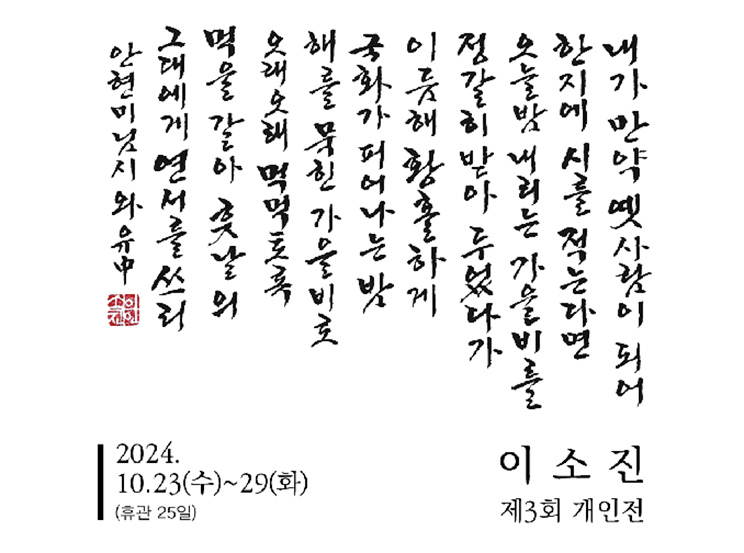 내가 만약 옛사람이 되어
한지에 시를 적는다면
오늘밤 내리는 가을비를
정갈히 받아 두었다가
이듬해 황홀하게
국화가 피어나는 밤
해를 묵힌 가을비로
오래오래 먹먹토록
먹을 갈아 훗날의
그대에게 연서를 쓰리
안현미님 시 와유 中
2024.
10.23(수)~29(화)
(휴관 25일)
이 소 진
제3회 개인전